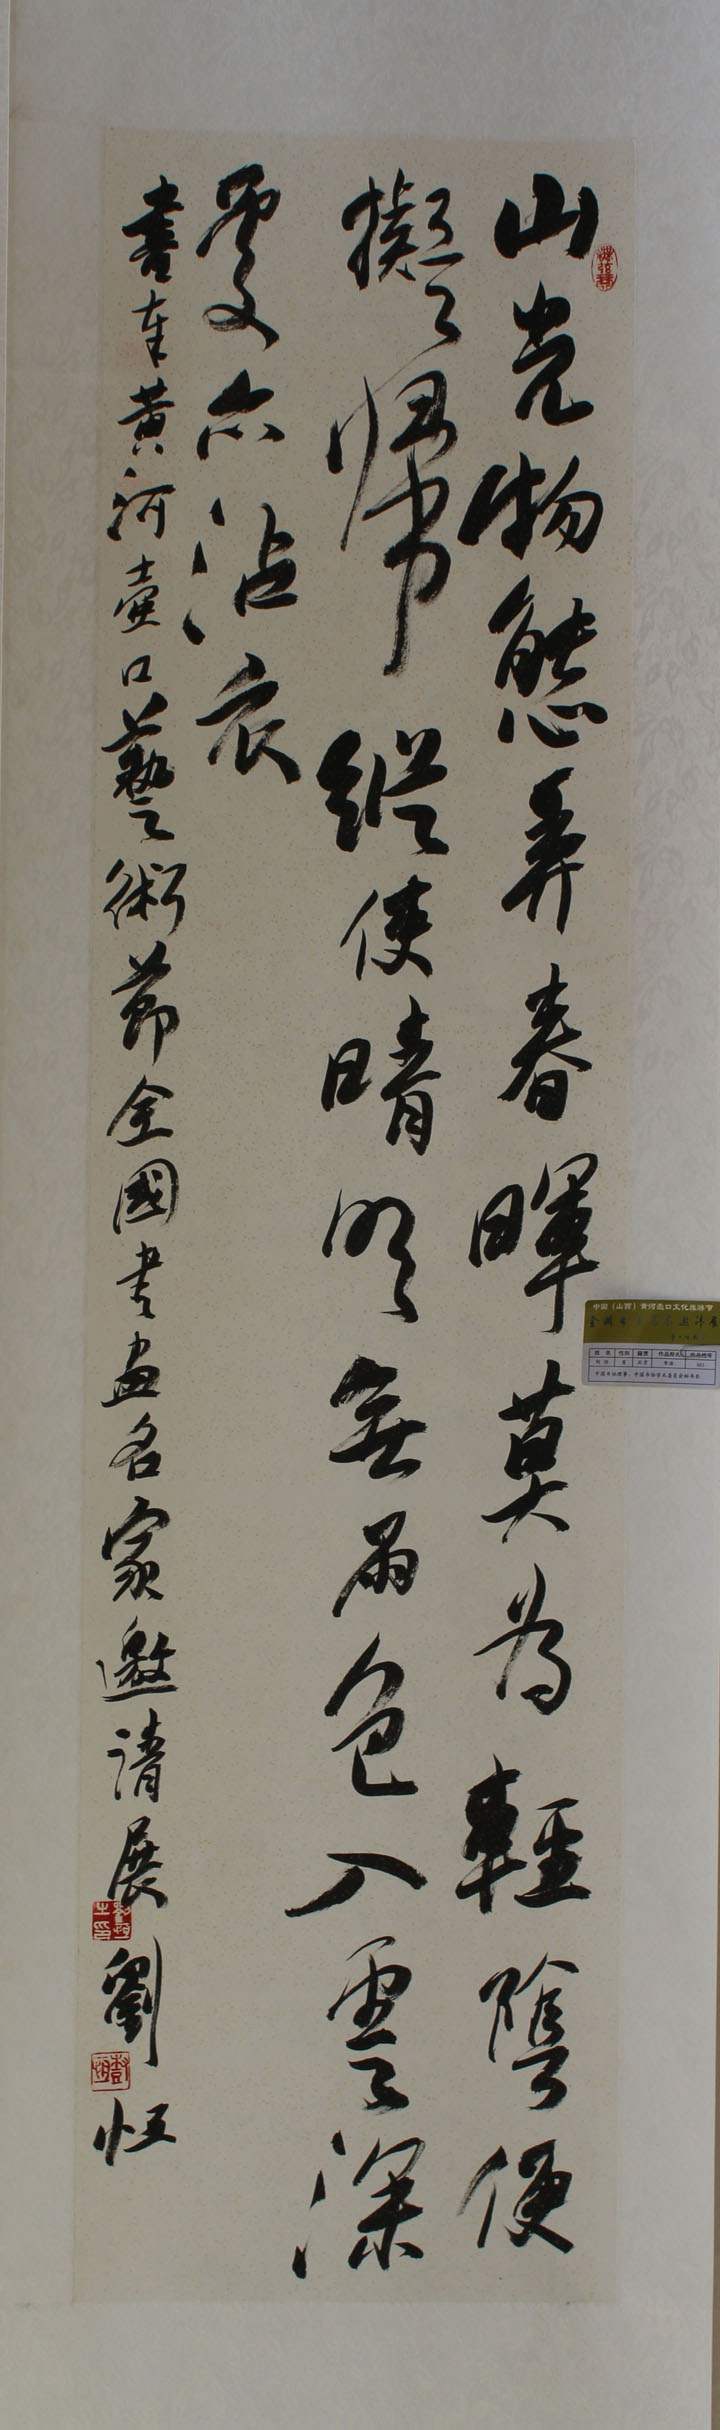 山光物態弄春暉莫為輕陰便
擬歸縱使晴明無雨色入雲深
處亦沾衣
書奉黃河壺口藝術節全國書畫名家邀請展劉恒
中国（山西）黄河壶口文化旅游节